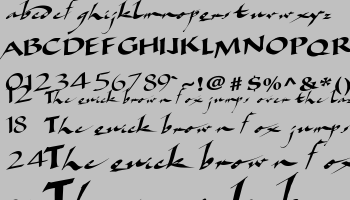 abcdefghijklmnopqrstuvwxyz
ABCDEFGHIJKLMNOPQR
0123456789 ~!@#$%^&*()
12 The quick brown fox jumps over the laz
18 The quick brown fox jumps
24 The quick brown fox
The quick b